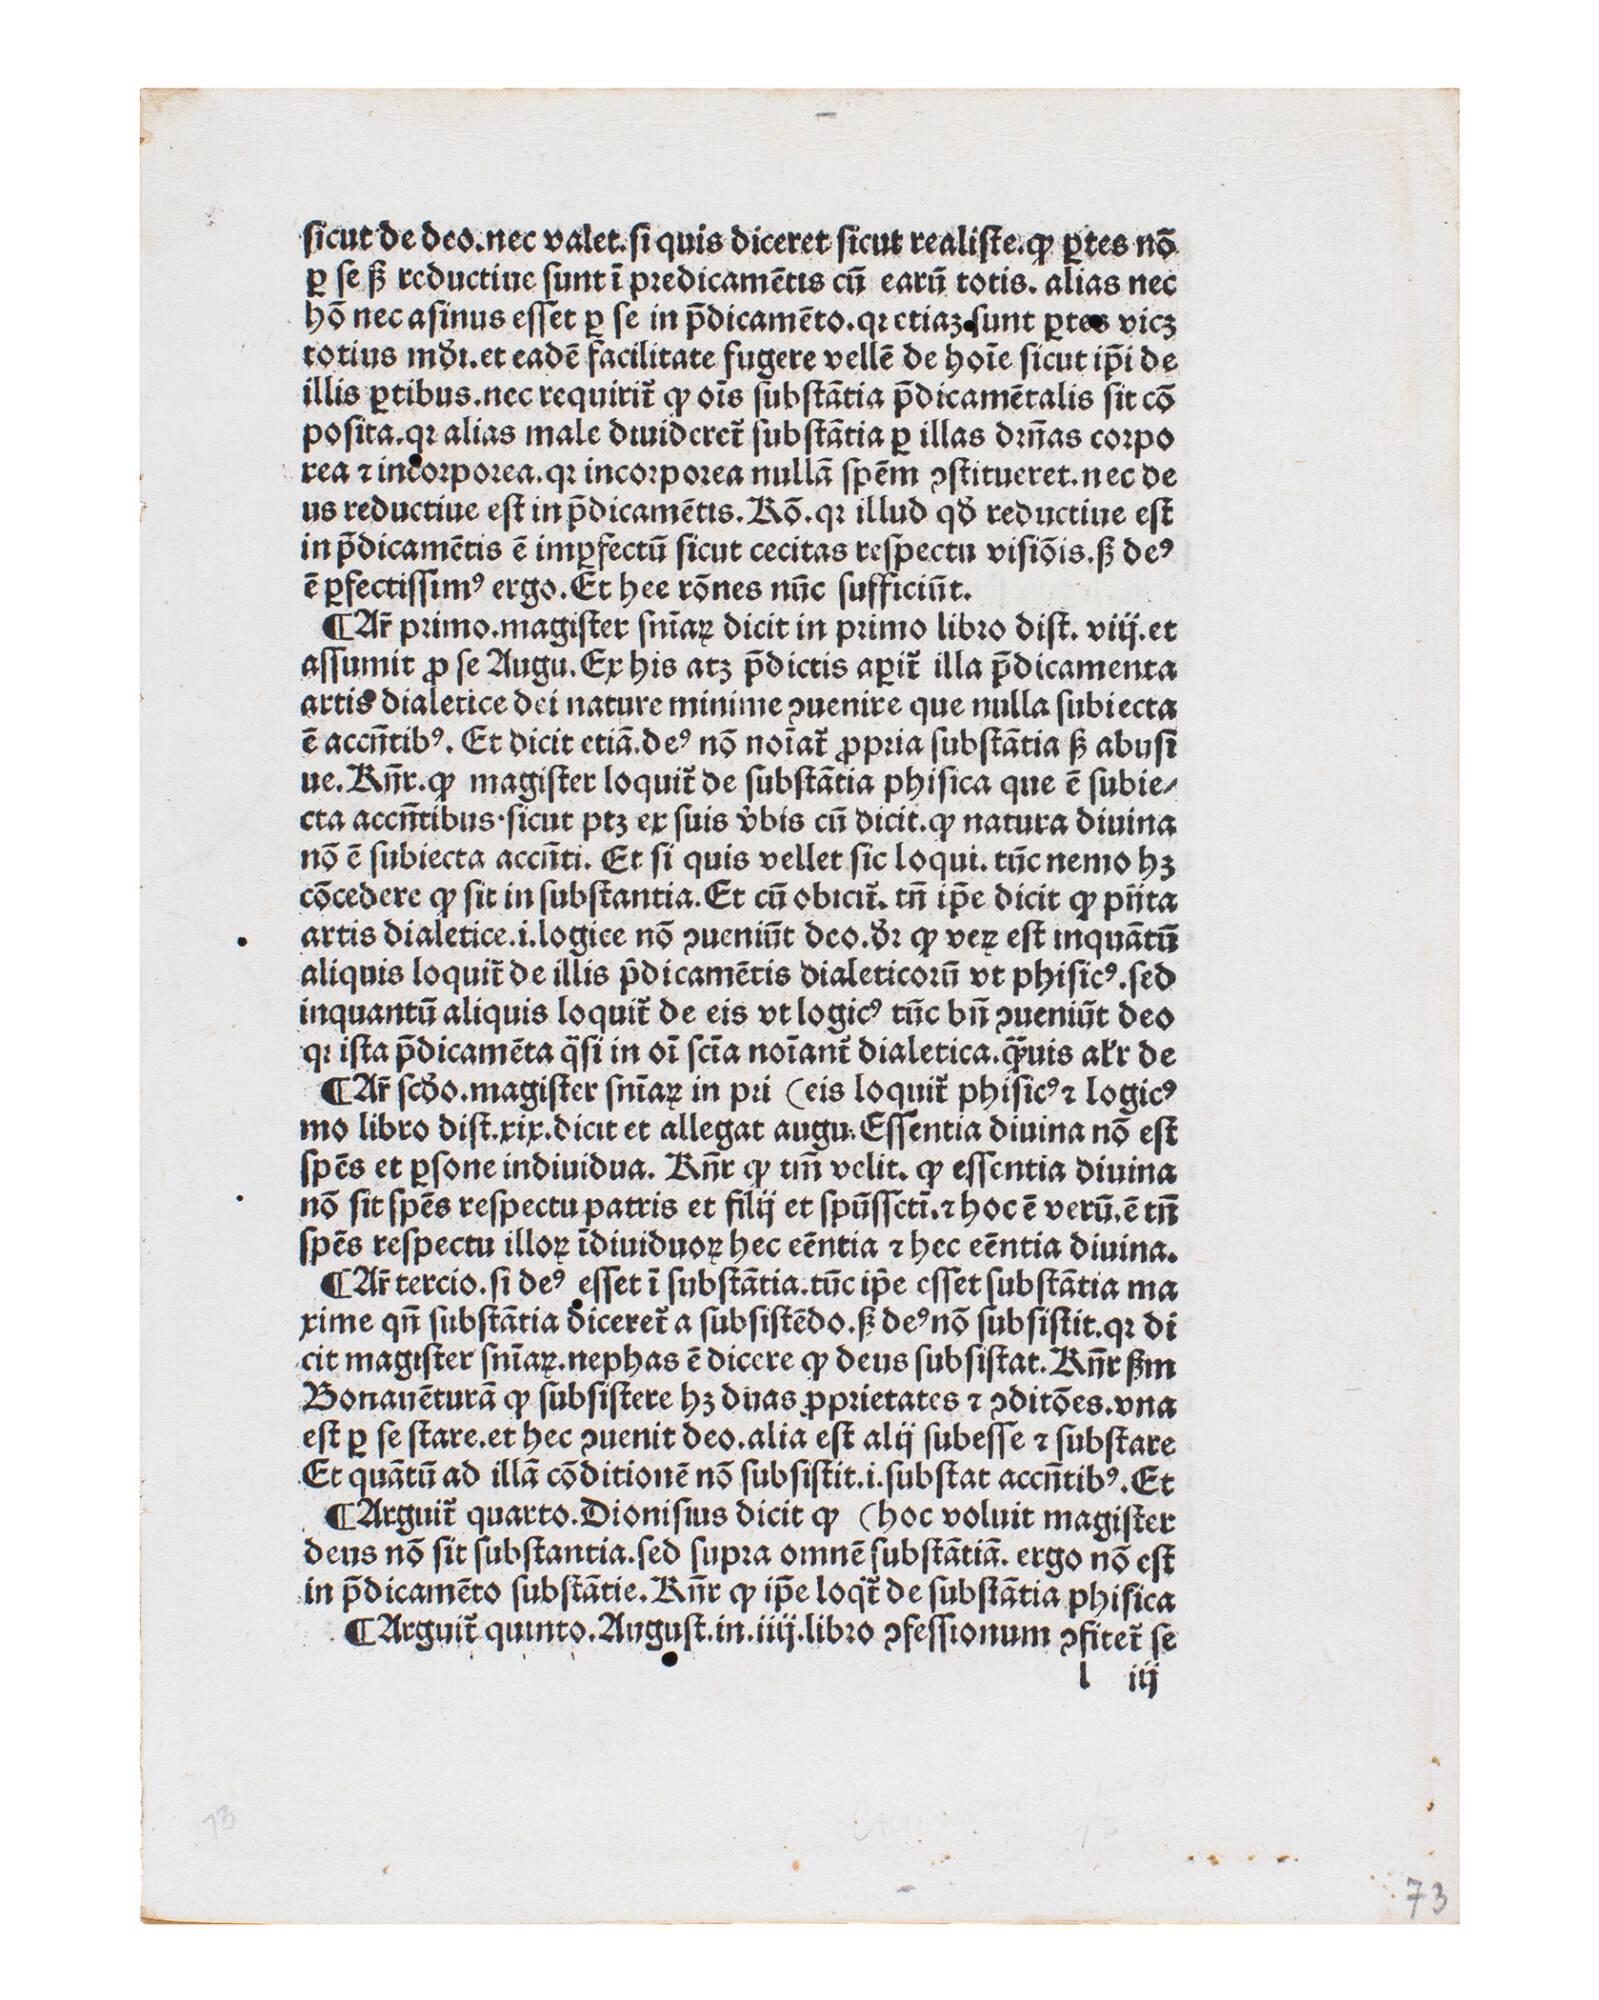 sicut de deo.nec valet.si quis diceret sicut realiste.ꝙ ꝑtes nō
ꝑ se ß reductiue sunt ī predicamētis cū earū totis. alias nec
hō nec asinus esset ꝑ se in p̄dicamēto.qꝛ etiaꝫ sunt ꝑtes vicꝫ
totius mūdi.et eadē facilitate fugere vellē de hoīe sicut ip̄i de
illis ꝑtibus.nec requirit̄ ꝙ oīs substātia p̄dicamētalis sit cō
posita.qꝛ alias male diuideret̄ substātia ꝑ illas drn̄as corpo
rea ⁊ incorporea.qꝛ incorporea nullā spēm ꝯstitueret.nec de
us reductiue est in p̄dicamētis. Rō.qꝛ illud qď reductiue est
in p̄dicamētis ē imꝑfectū sicut cecitas respectu visiōis.ß deꝰ
ē ꝑfectissimꝰ ergo. Et hee rōnes nūc sufficiūt.
¶Ar̄ primo.magister sn̄iaꝝ dicit in primo libro dist. viij.et
assumit ꝓ se Augu. Ex his atꝫ p̄dictis aꝑit̄ illa p̄dicamenta
artis dialetice dei nature minime ꝯuenire que nulla subiecta
ē accn̄tibꝰ. Et dicit etiā.deꝰ nō noīat̄ ꝓpria substātia ß abusi
ue. Rn̄r.ꝙ magister loquit̄ de substātia phisica que ē subie⸗
cta accn̄tibus.sicut ptꝫ ex suis v̓bis cū dicit.ꝙ natura diuina
nō ē subiecta accn̄ti. Et si quis vellet sic loqui. tūc nemo hꝫ
cōcedere ꝙ sit in substantia. Et cū obicit̄. tn̄ ip̄e dicit ꝙ pn̄ta
artis dialetice.i.logice nō ꝯueniūt deo.ďr ꝙ veꝝ est inquātū
aliquis loquit̄ de illis p̄dicamētis dialeticorū vt phisicꝰ.sed
inquantū aliquis loquit̄ de eis vt logicꝰ tūc bn̄ ꝯueniūt deo
qꝛ ista p̄dicamēta q̄si in oī scīa noīant̄ dialetica.ꝙ̄uis alr̄ de
¶Ar̄ scďo.magister sn̄iaꝝ in pri (eis loquit̄ phisicꝰ ⁊ logicꝰ
mo libro dist.xix.dicit et allegat augu. Essentia diuina nō est
spēs et ꝑsone indiuidua. Rn̄r ꝙ tm̄ velit. ꝙ essentia diuina
nō sit spēs respectu patris et filij et spūssctī.⁊ hoc ē verū.ē tn̄
spēs respectu illoꝝ īdiuiduoꝝ hec eēntia ⁊ hec eēntia diuina.
¶Ar̄ tercio.si deꝰ esset ī substātia.tūc ip̄e esset substātia ma
xime qn̄ substātia diceret̄ a subsistēdo.ß deꝰ nō subsistit.qꝛ di
cit magister sn̄iaꝝ.nephas ē dicere ꝙ deus subsistat. Rn̄r ßm
Bonauēturā ꝙ subsistere hꝫ duas ꝓprietates ⁊ ꝯditōes.vna
est ꝑ se stare.et hec ꝯuenit deo.alia est alij subesse ⁊ substare
Et quātū ad illā cōditionē nō subsistit.i.substat accn̄tibꝰ. Et
¶Arguit̄ quarto. Dionisius dicit ꝙ (hoc voluit magister
deus nō sit substantia.sed supra omnē substātiā. ergo nō est
in p̄dicamēto substātie. Rn̄r ꝙ ip̄e loqt̄ de substātia phisica
¶Arguit̄ quinto. August.in.iiij.libro ꝯfessionum ꝯfitet̄ se
l iij
73
73